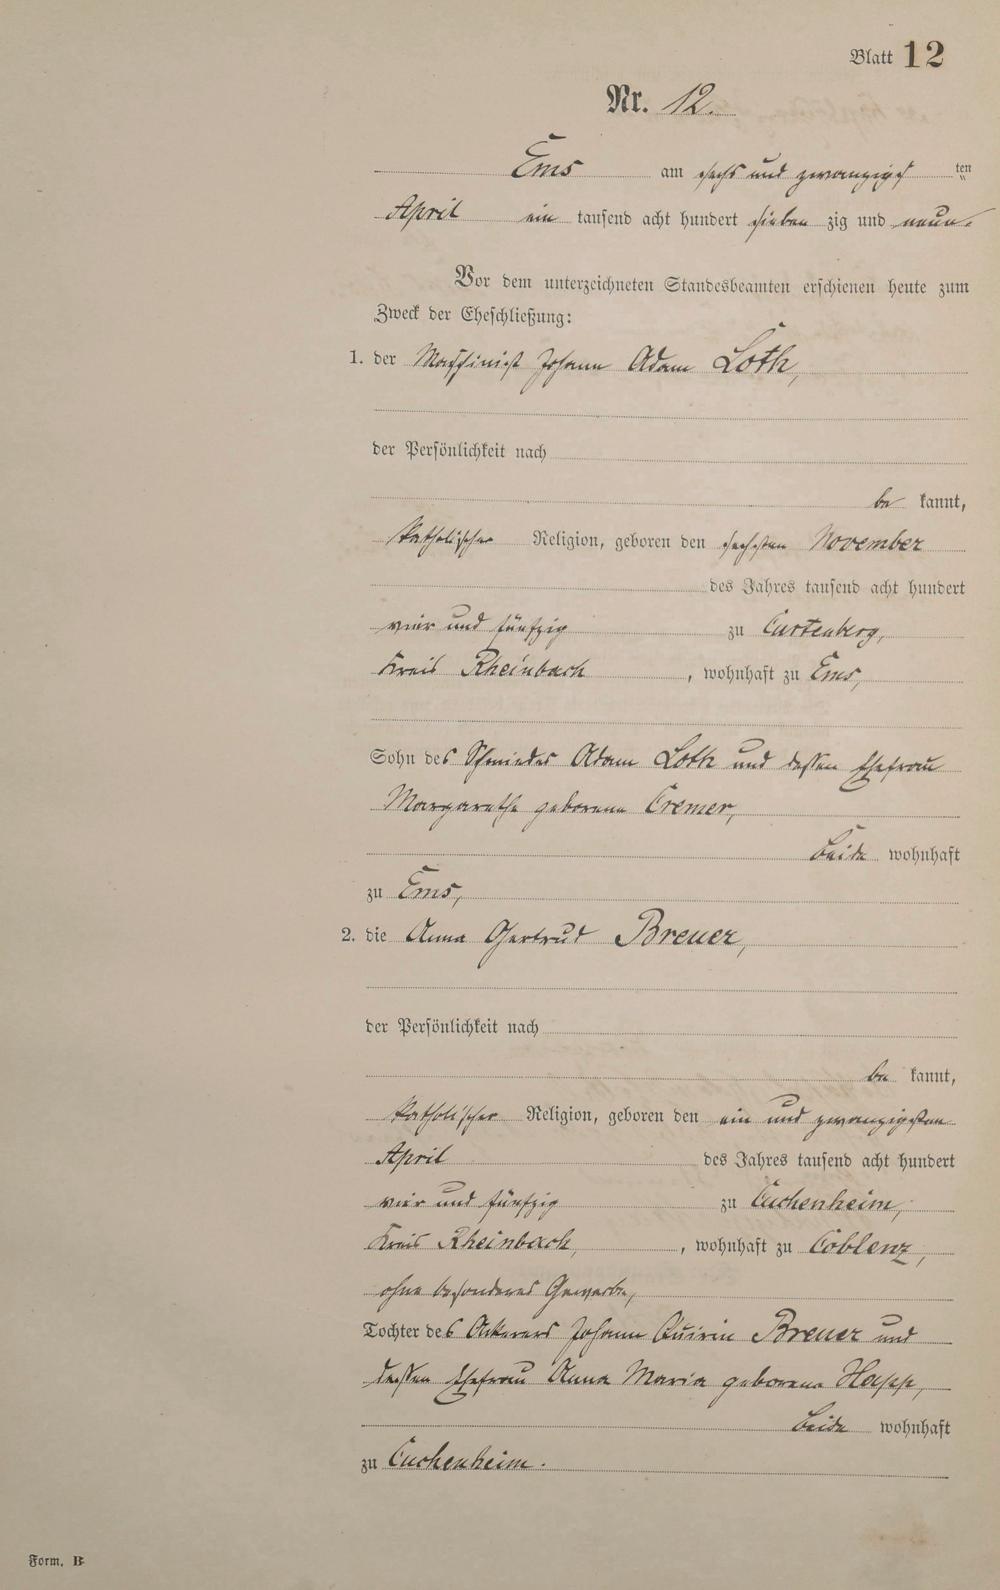 Blatt 12
Nr. 12.
Ems am sechs und zwanzigs ten
April ein tausend acht hundert sieben zig und neun.
Vor dem unterzeichneten Standesbeamten erschienen heute zum
Zweck der Eheschließung:
1. der Maschinist Johann Adam Loth,
der Persönlichkeit nach
be kannt,
katholischer Religion, geboren den sechsten November
des Jahres tausend acht hundert
vier und fünfzig zu Curtenberg,
Kreis Rheinbach, wohnhaft zu Ems,
Sohn des Schmiedes Adam Loth und dessen Ehefrau
Margarethe geborene Cremer,
beide wohnhaft
zu Ems,
2. die Anna Gertrud Breuer,
der Persönlichkeit nach
be kannt,
katholischer Religion, geboren den ein und zwanzigsten
April des Jahres tausend acht hundert
vier und fünfzig zu Cuchenheim,
Kreis Rheinbach, wohnhaft zu Coblenz,
ohne besonderes Gewerbe,
Tochter des Ackerers Johann Quirin Breuer und
dessen Ehefrau Anna Maria geborene Happ,
beide wohnhaft
zu Cuchenheim.
Form. B